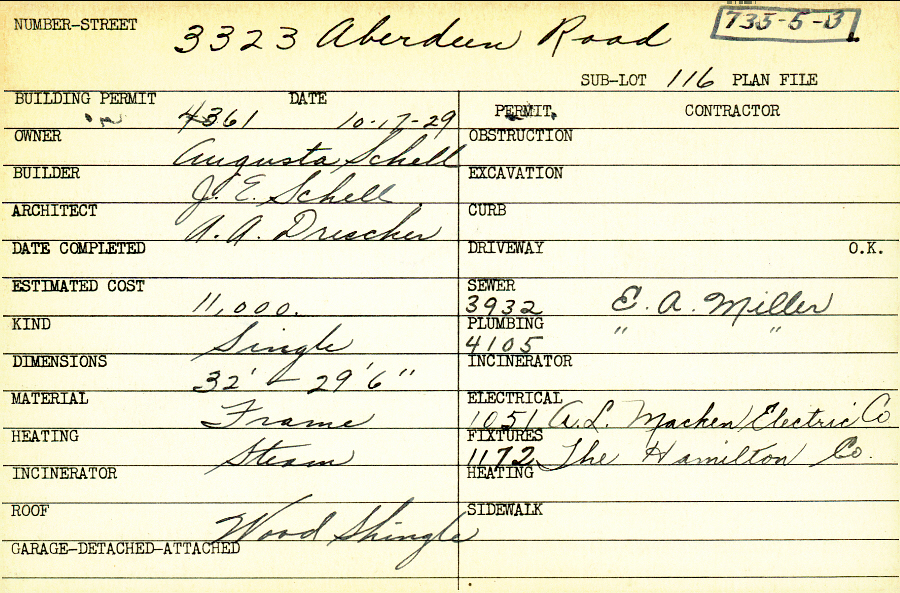 NUMBER-STREET 3323 Aberdeen Road 735-5-B
SUB-LOT 116 PLAN FILE
BUILDING PERMIT 4361 DATE 10-17-29
PERMIT CONTRACTOR
OWNER Augusta Schell
OBSTRUCTION
BUILDER J. E. Schell
EXCAVATION
ARCHITECT A. A. Drescher
CURB
DATE COMPLETED
DRIVEWAY O.K.
ESTIMATED COST 11,000.
SEWER 3932 E. A. Miller
KIND Single
PLUMBING 4105 " "
DIMENSIONS 32' - 29'6"
INCINERATOR
MATERIAL Frame
ELECTRICAL 1051 A. L. Macken Electric Co
HEATING Steam
FIXTURES 1172 The Hamilton Co.
INCINERATOR
HEATING
ROOF Wood Shingle
SIDEWALK
GARAGE-DETACHED-ATTACHED